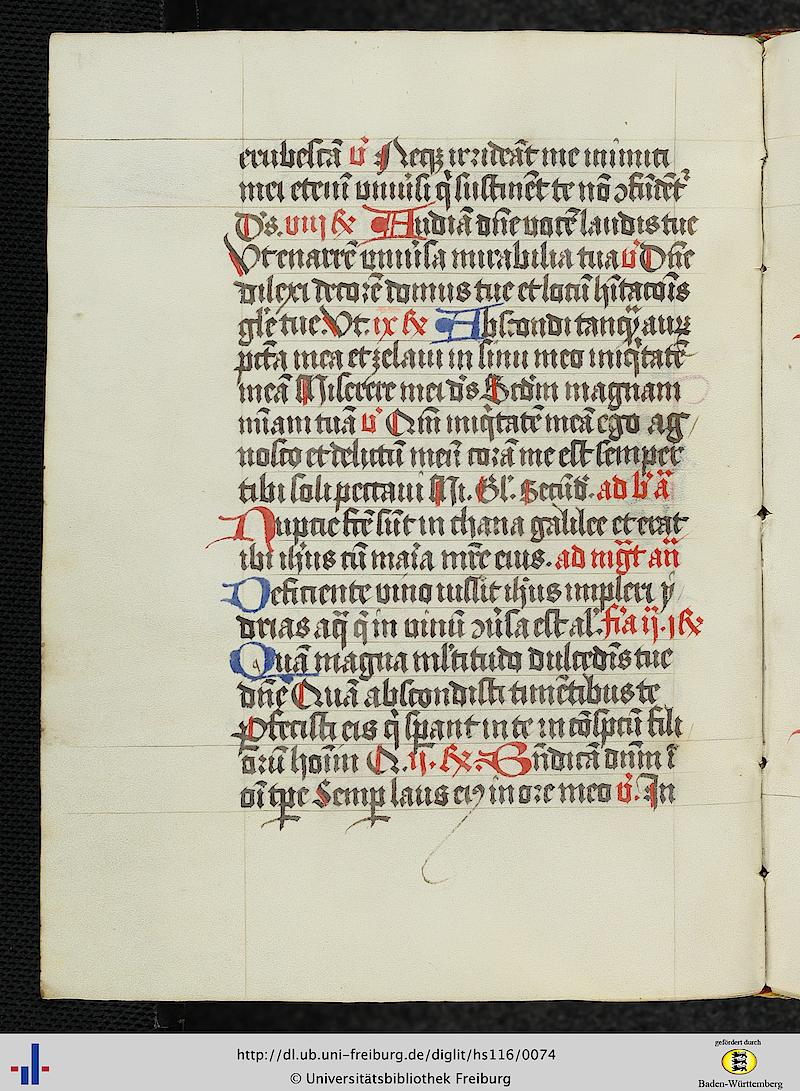 erubescā v̄ Neqꝫ irrideāt me inimici
mei eteni᷑ univ̓si q̇ sustinēt te nō ↄfūdēt᷑
D̄s. viij ꝶ Audiā dn̄e vocē laudis tue
Vt enarrē univ̓sa mirabilia tua v̄ Dn̄e
dilexi decorē domus tue et locū hītacōis
glē tue Vt. ix ꝶ Abscondi tanq̄ aurꝫ
pctā mea et zelaui in sinu meo iniq̇tatē
meā Miserere mei d̄s Scdm̄ magnam
mīam tuā v̄ Qm̄ iniq̇tatē meā ego ag
nosco et delictū meū corā me est semper
tibi soli peccaui Mi. Gl̓. Secūd̓. ad b̓ a᷑
Nuptie fc̄e sūt in chana galilee et erat
ibi ih̄us cū maria mr̄e eius. ad mg̅t an̄
Deficiente vino iussit ih̄us impleri y
drias aq̄ q̄ in vinū ↄūsa est al̓. fr̓a ij. j ꝶ
Quā magna ml̓titudo dulcedīs tue
dn̄e Quā abscondisti timētibus te
ꝓfecisti eis q̇ sꝑant in te in cōspc̄u fili
orū hoīm Q. ij. ꝶ. Bn̄dicā dnm̄ ī
oī tꝑe Semꝑ laus eiꝰ in ore meo v̄. In
http://dl.ub.uni-freiburg.de/diglit/hs116/0074
© Universitätsbibliothek Freiburg
gefördert durch
Baden-Württemberg